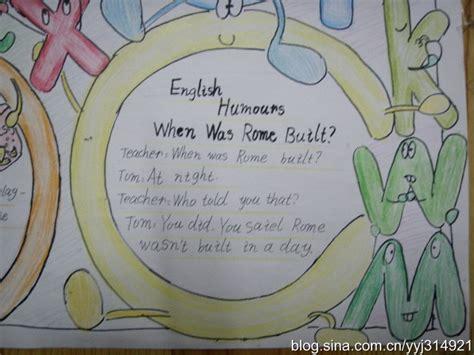 English
Humours
When Was Rome Built?
Teacher: When was Rome built?
Tom: At night.
Teacher: Who told you that?
Tom: You did. You saied Rome
wasn't built in a day.
elag-
se
X
K
W
M
blog.sina.com.cn/yyj314921